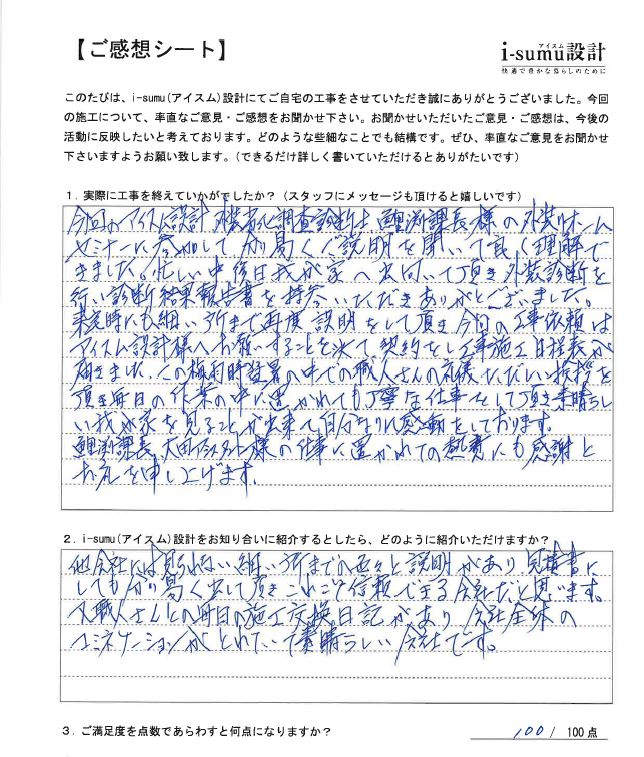 【ご感想シート】
アイスム
i-sumu設計
快適で豊かな暮らしのために
このたびは、i-sumu(アイスム)設計にてご自宅の工事をさせていただき誠にありがとうございました。今回
の施工について、率直なご意見・ご感想をお聞かせ下さい。お聞かせいただいたご意見・ご感想は、今後の
活動に反映したいと考えております。どのような些細なことでも結構です。ぜひ、率直なご意見をお聞かせ
下さいますようお願い致します。(できるだけ詳しく書いていただけるとありがたいです)
1．実際に工事を終えていかがでしたか？（スタッフにメッセージも頂けると嬉しいです）
今回のアイスム設計 外装劣化調査診断士 鯉渕課長様の外装リホーム
セミナーに参加して分り易くご説明を聞いて良く理解で
きました。忙しい中後日我が家へ出向いて頂き外装診断を
行い診断結果報告書を持参いただきありがとございました。
来宅時にも細い所まで再度説明をして頂き今回の工事依頼は
アイスム設計様へお願いすることを決て契約をし工事施工日程表が
届きました。この梅雨時猛暑の中での職人さんの礼儀ただしい挨拶を
頂き毎日の作業の中に置かれても丁寧な仕事をして頂き素晴らし
い我が家を見ることが出来て自分なりに感動をしております。
鯉渕課長、太田アシスタント様の仕事に置かれての熱意にも感謝と
お礼を申し上げます。
2．i-sumu(アイスム)設計をお知り合いに紹介するとしたら、どのように紹介いただけますか？
他会社には見られない細い所までの色々と説明があり見積書に
しても分り易く出して頂きこれこそ信頼できる会社だと思います。
又職人さんとの毎日の施工交換日記があり会社全体の
コミネケーションがとれていて素晴らしい会社です。
3．ご満足度を点数であらわすと何点になりますか？
100／100点